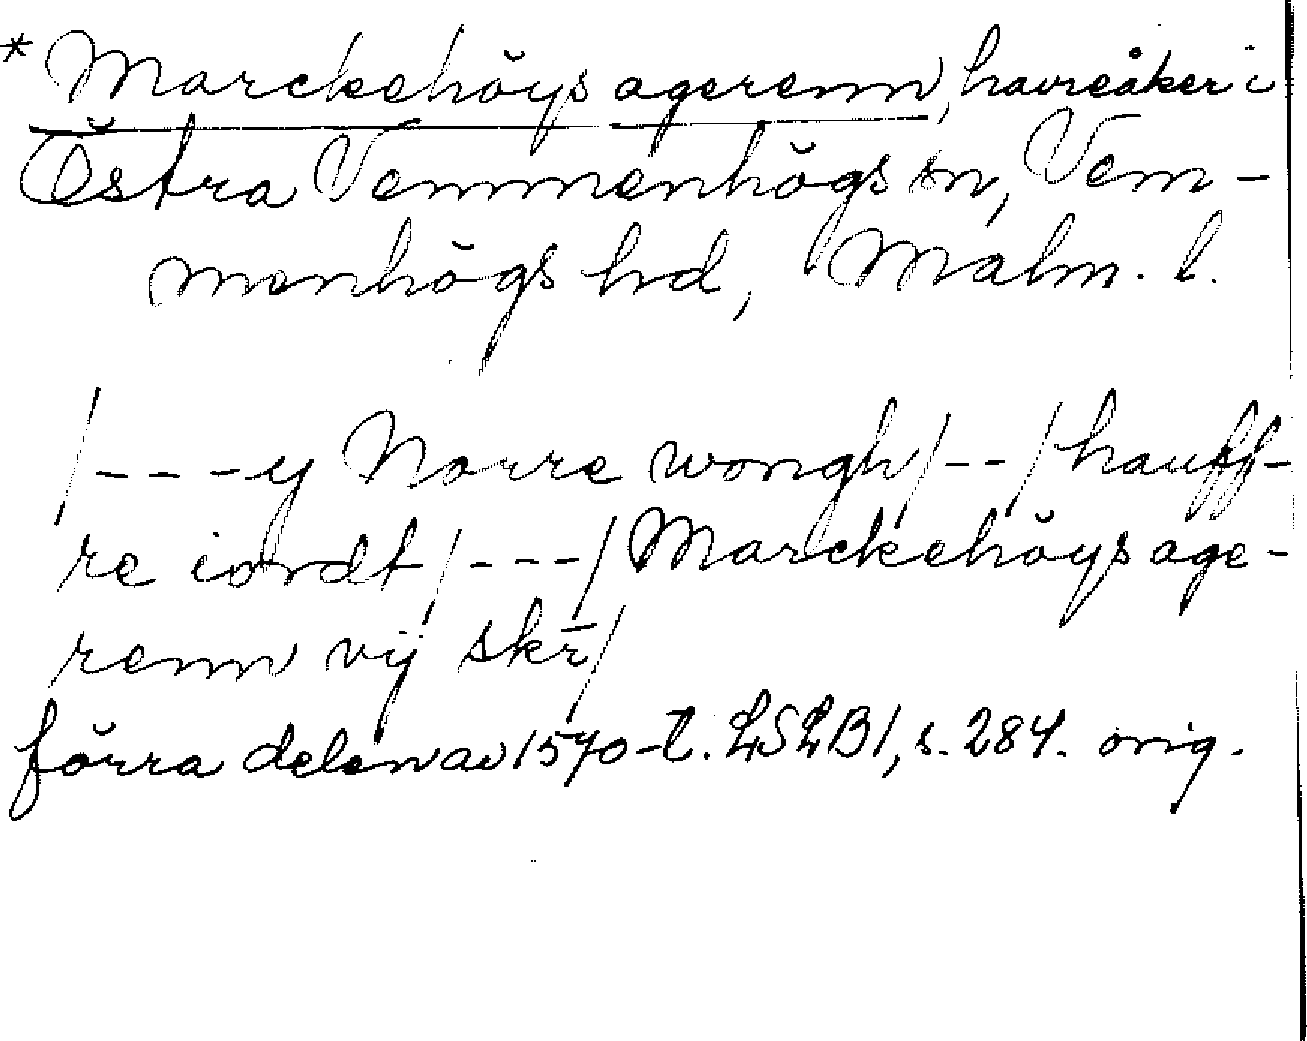 * Marckehöys agerenn, havreåker i
Östra Vemmenhögs sn, Vem-
menhögs hd, Malm. l.
/---y Norre wongh/--/hauff-
re iordt/---/Marckehöys age-
renn vij skr̄/
förra delen av 1570-t. LSLB1, s. 284. orig.